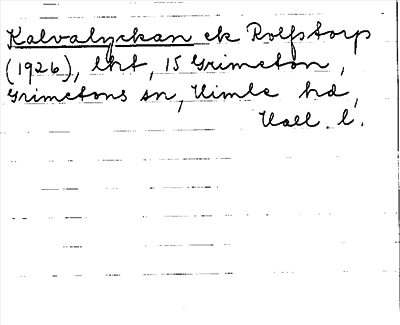 Kalvalyckan ek Rolfstorp
(1926), lht, 15 Grimeton,
Grimetons sn, Himle hd,
Hall. l.